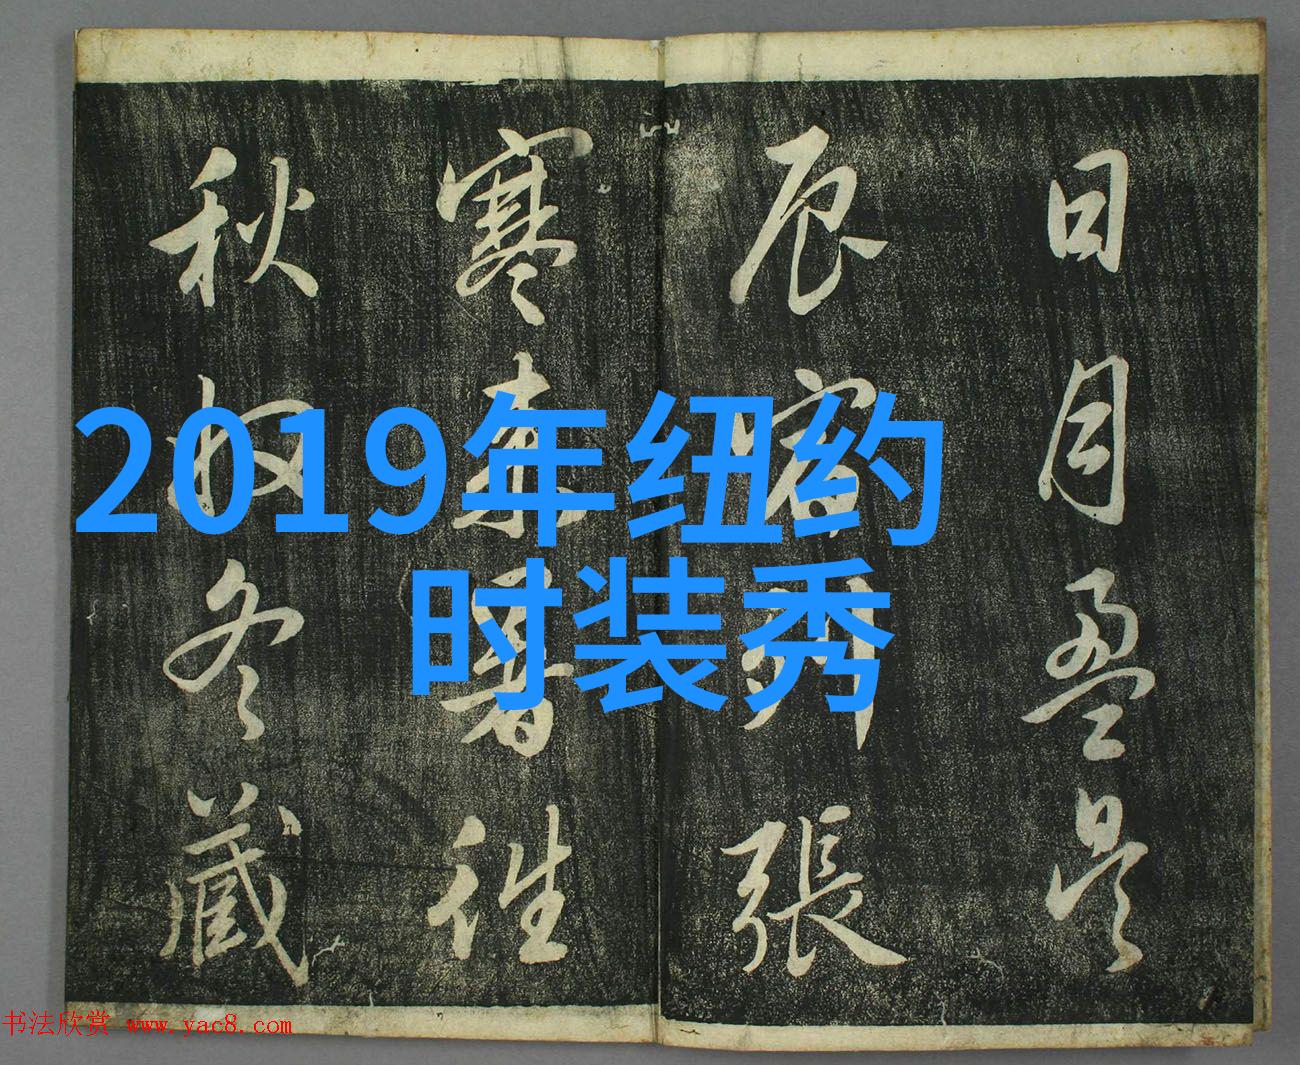 日月盈昃
辰宿列張
寒来暑往
秋收冬藏
2019年纽约
时装秀
书法欣赏 www.yac8.com